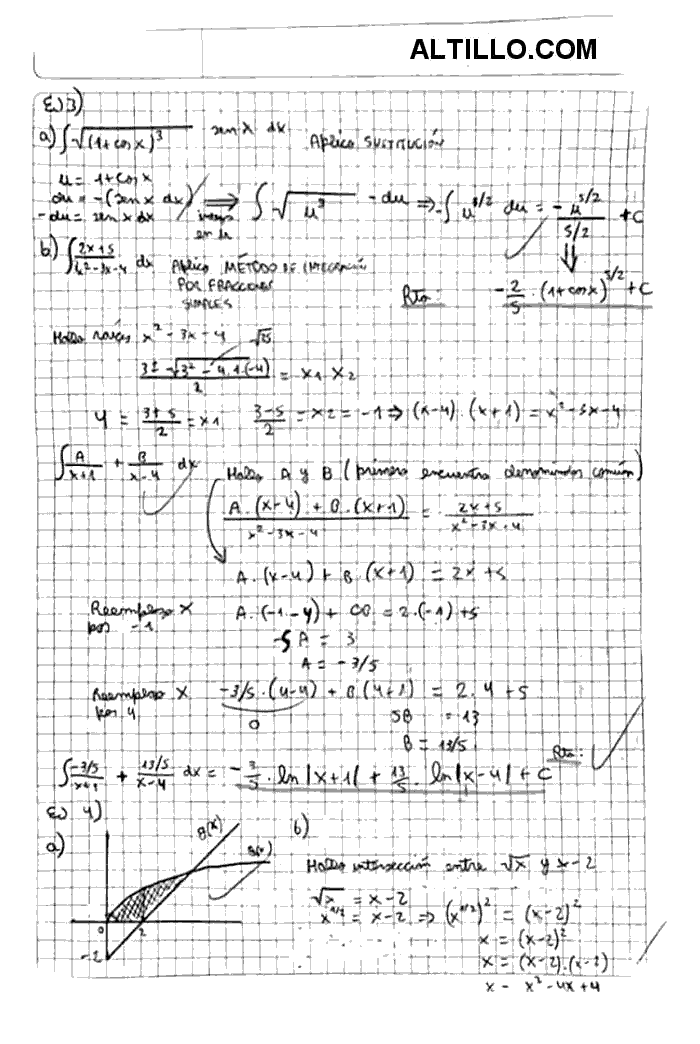 ALTILLO.COM
EJ 3)
a) ∫ √(1+cosx)³ sen x dx Aplico SUSTITUCIÓN
u = 1+cosx
du = -(sen x dx)
-du = sen x dx
⇒ ∫ √u³ -du ⇒ -∫ u^3/2 du = -u^5/2 / 5/2 + C
b) ∫ 2x+5 / x²-3x-4 dx Aplico MÉTODO DE INTEGRACIÓN
POR FRACCIONES
SIMPLES
Rta: -2/5 · (1+cosx)^5/2 + C
Hallo raíces x² - 3x - 4 √25
3 ± √(3² - 4.1.(-4)) / 2 = x1 x2
4 = 3+5 / 2 = x1 3-5 / 2 = x2 = -1 ⇒ (x-4) · (x+1) = x²-3x-4
∫ A / x+1 + B / x-4 dx Hallo A y B (primero encuentro denominador común)
A.(x-4) + B.(x+1) / x²-3x-4 = 2x+5 / x²-3x-4
A.(x-4) + B.(x+1) = 2x+5
Reemplazo x por -1 A.(-1-4) + = 2.(-1)+5
-5A = 3
A = -3/5
Reemplazo x por 4 -3/5.(4-4) + B(4+1) = 2.4+5
0 5B = 13
B = 13/5
Rta:
∫ -3/5 / x+1 + 13/5 / x-4 dx = -3/5 . ln|x+1| + 13/5 . ln|x-4| + C
EJ 4)
a) g(x)
0 2
-2
b)
Hallo intersección entre √x y x-2
√x = x-2
x^1/2 = x-2 ⇒ (x^1/2)² = (x-2)²
x = (x-2)²
x = (x-2).(x-2)
x = x²-4x+4